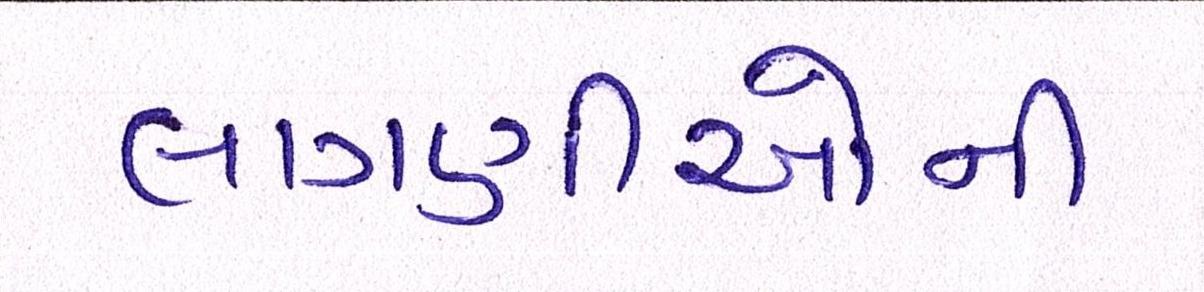 લાગણીઓની